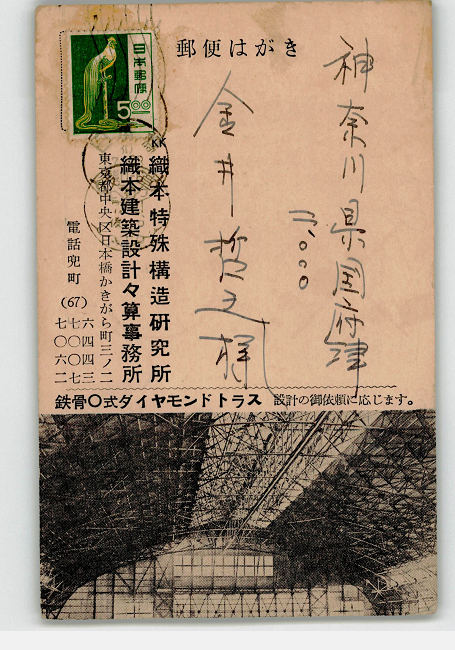 郵便はがき
日本郵便
5.00
神奈川県国府津
三、〇〇〇
金井哲之様
KK 織本特殊構造研究所
織本建築設計々算事務所
東京都中央区日本橋かきがら町三ノ二
電話兜町 (67) 六四四三
七〇〇七
七〇六二
鉄骨〇式ダイヤモンドトラス 設計の御依頼に応じます。